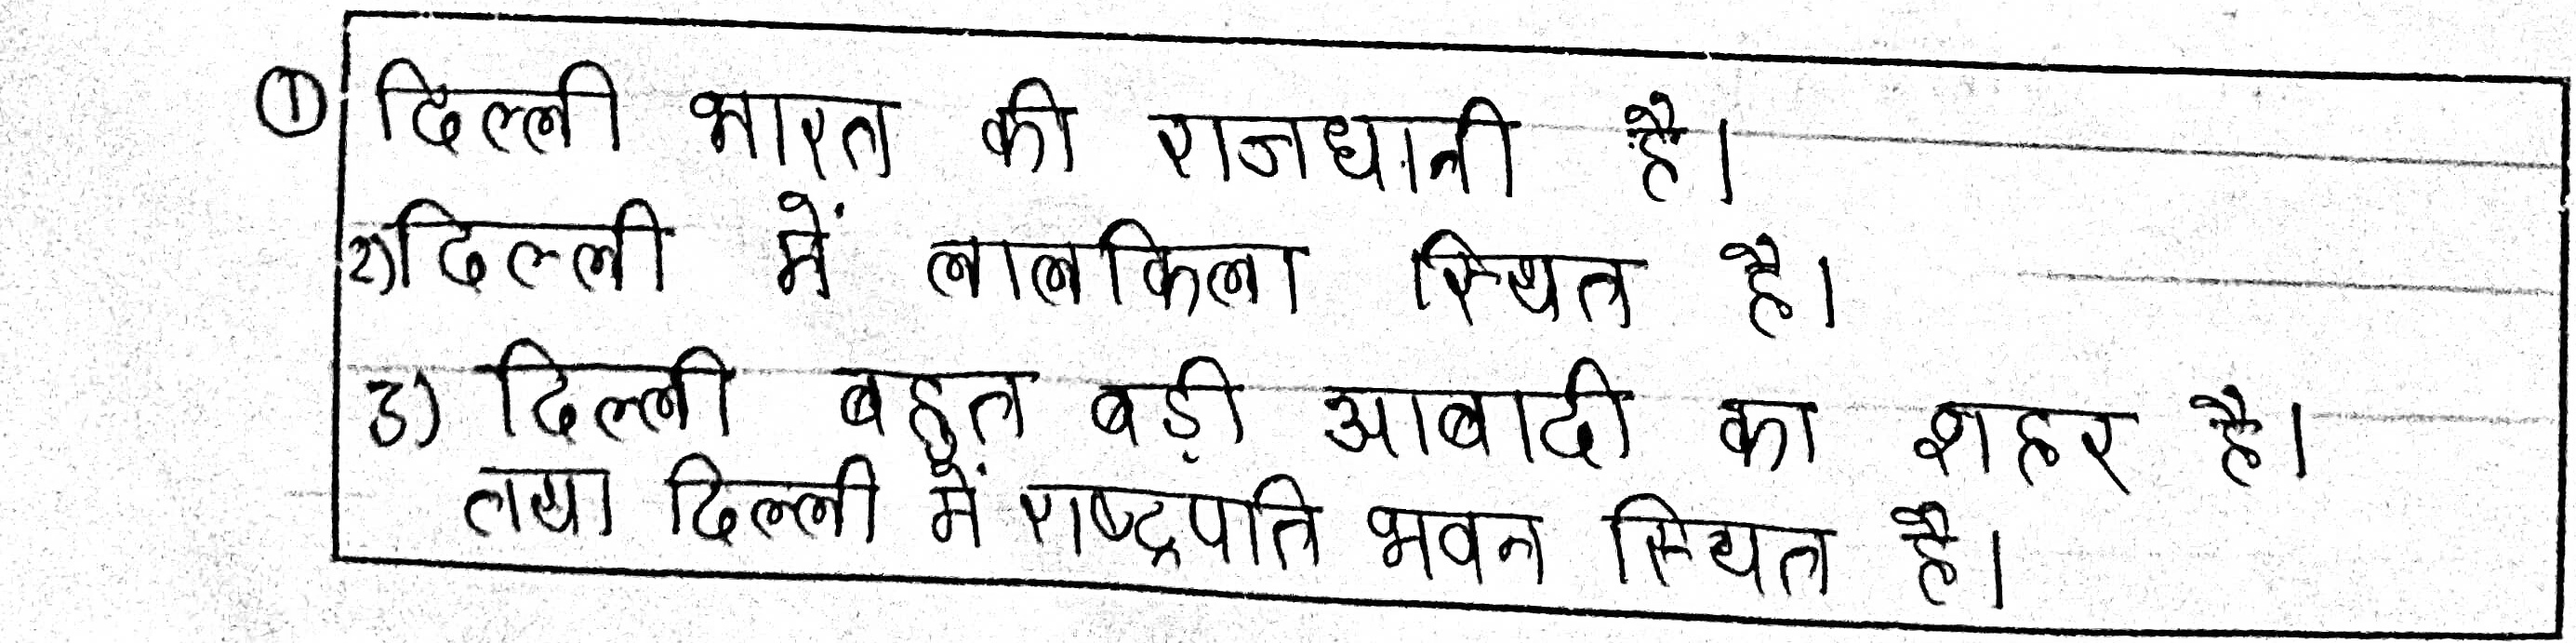 ① दिल्ली भारत की राजधानी है।
2) दिल्ली में लालकिला स्थित है।
3) दिल्ली बहुत बड़ी आबादी का शहर है।
तथा दिल्ली में राष्ट्रपति भवन स्थित है।